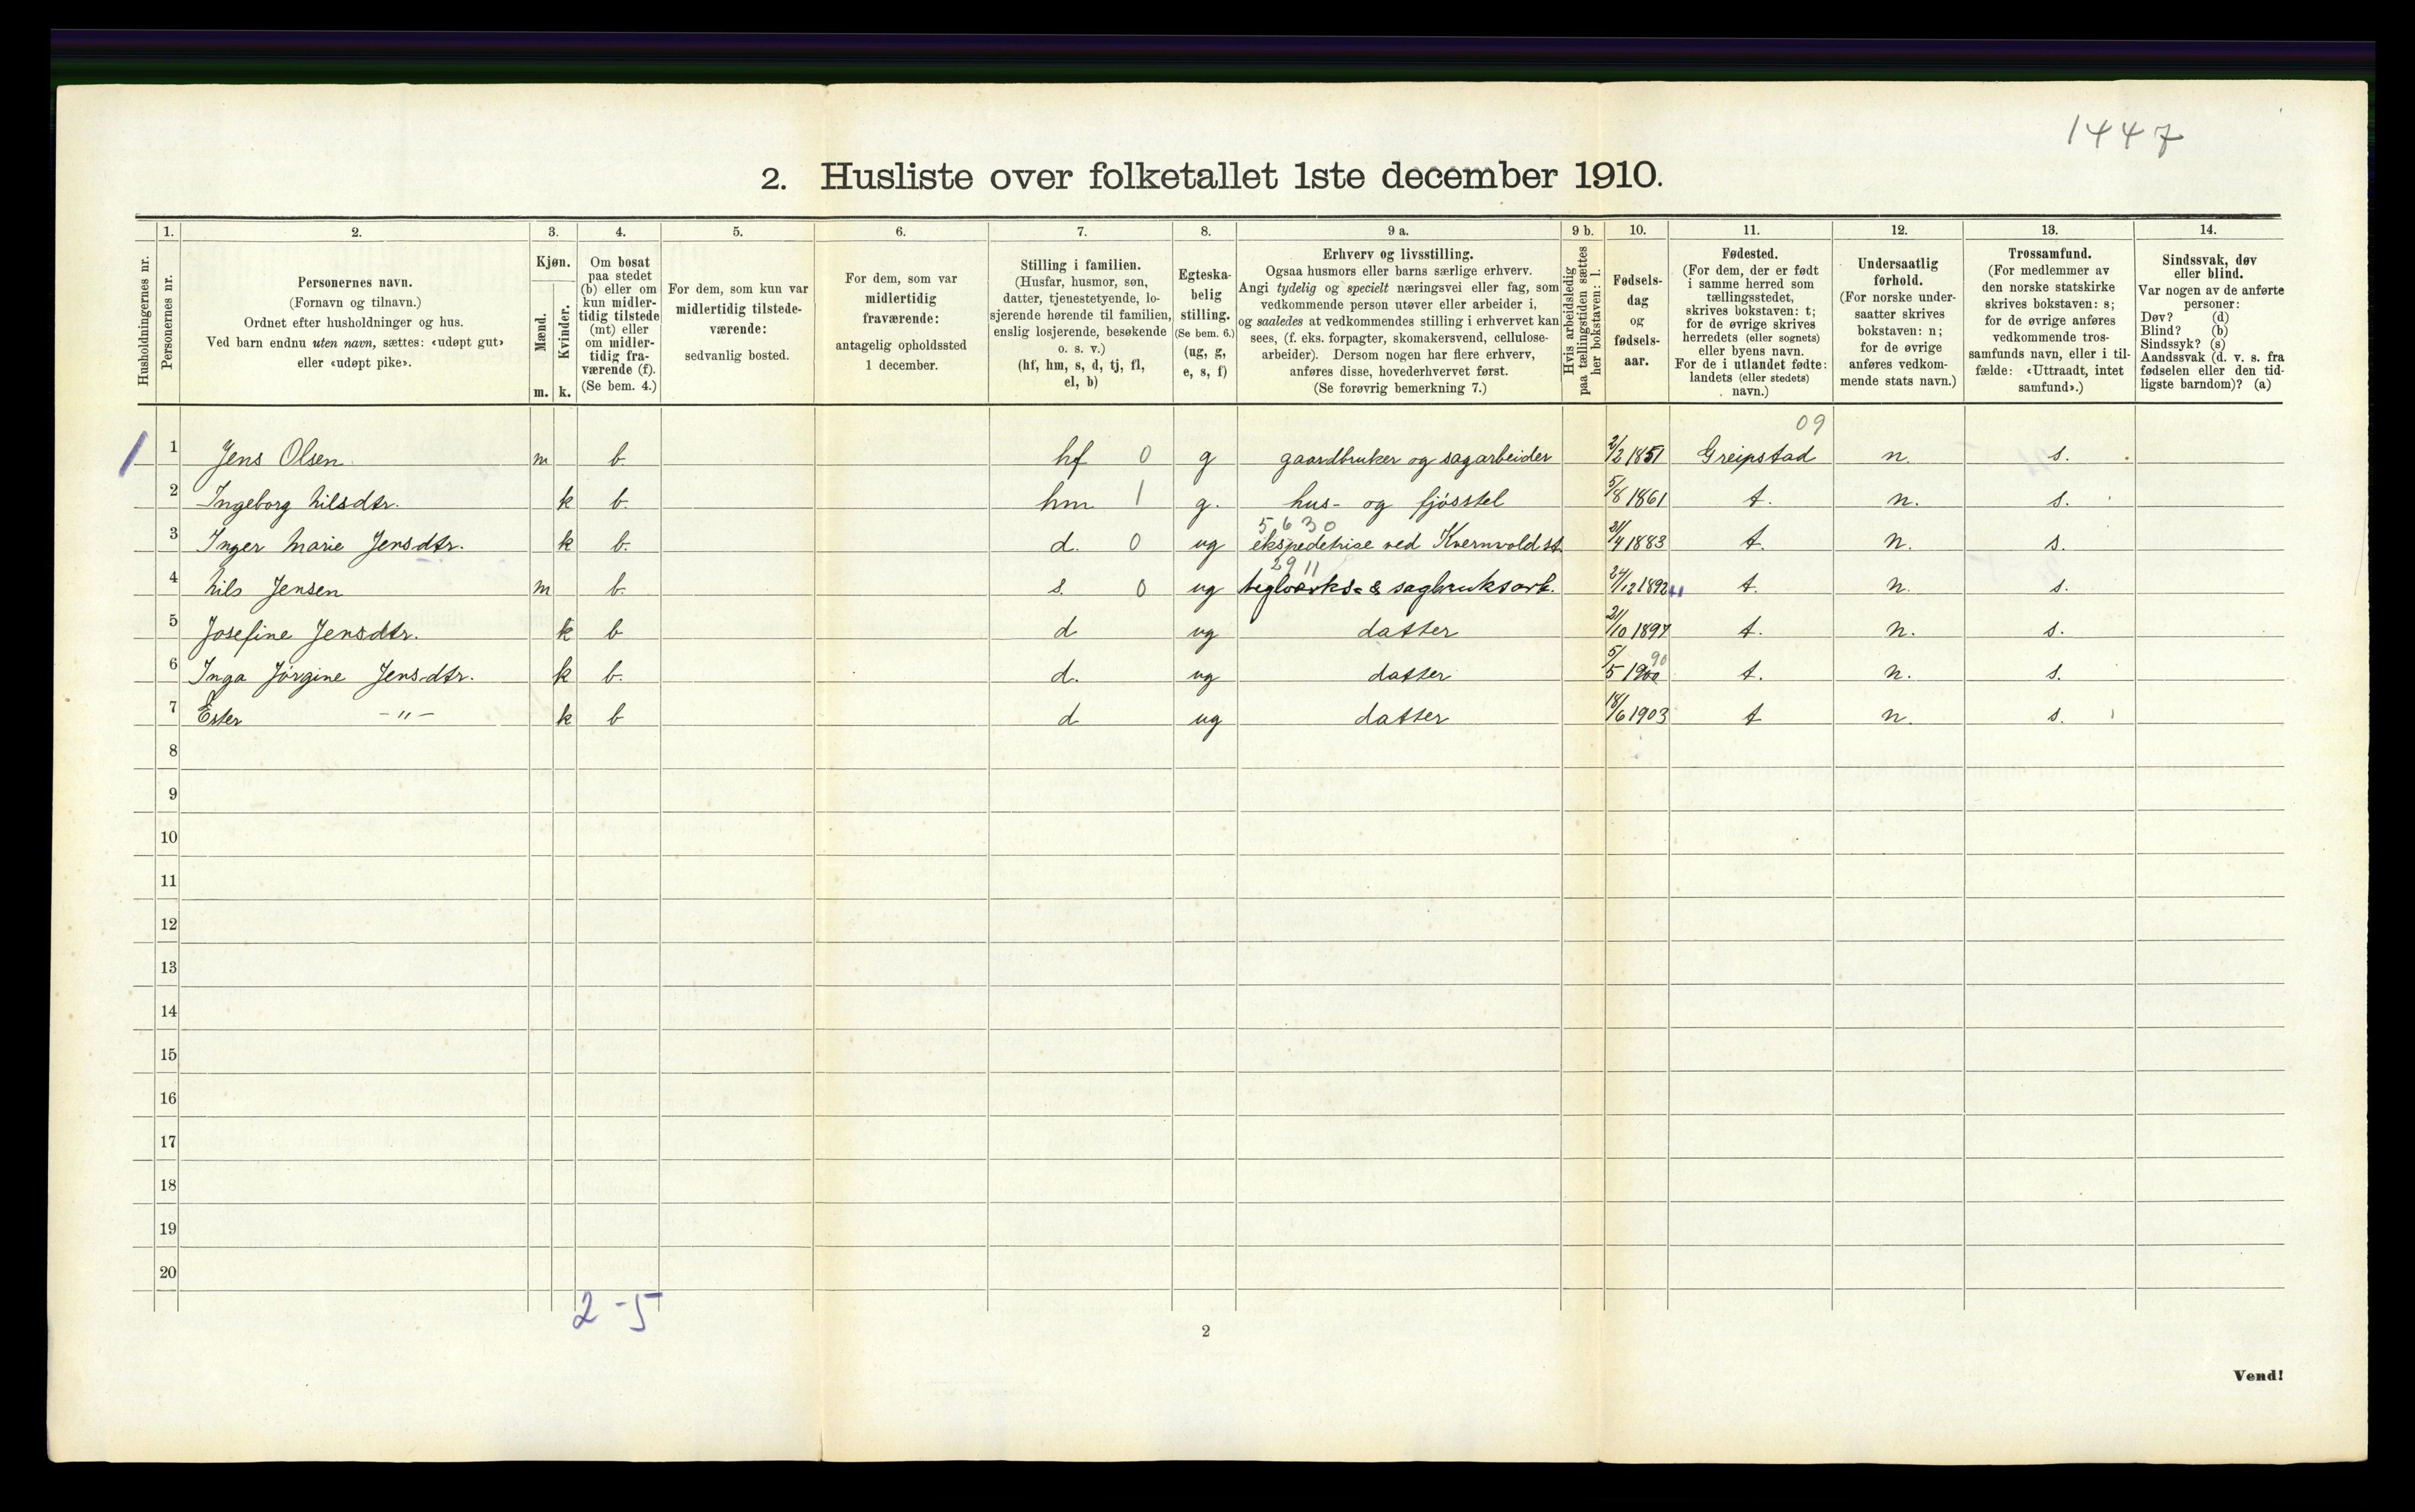 1447
2. Husliste over folketallet 1ste december 1910.
Husholdningernes nr.
1. Personernes nr.
2. Personernes navn. (Fornavn og tilnavn.) Ordnet efter husholdninger og hus. Ved barn endnu uten navn, sættes: «udøpt gut» eller «udøpt pike».
3. Kjøn. Mænd. m. Kvinder. k.
4. Om bosat paa stedet (b) eller om kun midlertidig tilstede (mt) eller om midlertidig fraværende (f). (Se bem. 4.)
5. For dem, som kun var midlertidig tilstedeværende: sedvanlig bosted.
6. For dem, som var midlertidig fraværende: antagelig opholdssted 1 december.
7. Stilling i familien. (Husfar, husmor, søn, datter, tjenestetyende, losjerende hørende til familien, enslig losjerende, besøkende o. s. v.) (hf, hm, s, d, tj, fl, el, b)
8. Egteskabelig stilling. (Se bem. 6.) (ug, g, e, s, f)
9 a. Erhverv og livsstilling. Ogsaa husmors eller barns særlige erhverv. Angi tydelig og specielt næringsvei eller fag, som vedkommende person utøver eller arbeider i, og saaledes at vedkommendes stilling i erhvervet kan sees, (f. eks. forpagter, skomakersvend, cellulosearbeider). Dersom nogen har flere erhverv, anføres disse, hovederhvervet først. (Se forøvrig bemerkning 7.)
9 b. Hvis arbeidsledig paa tællingstiden sættes her bokstaven: l.
10. Fødselsdag og fødselsaar.
11. Fødested. (For dem, der er født i samme herred som tællingsstedet, skrives bokstaven: t; for de øvrige skrives herredets (eller sognets) eller byens navn. For de i utlandet fødte: landets (eller stedets) navn.)
12. Undersaatlig forhold. (For norske undersaatter skrives bokstaven: n; for de øvrige anføres vedkommende stats navn.)
13. Trossamfund. (For medlemmer av den norske statskirke skrives bokstaven: s; for de øvrige anføres vedkommende trossamfunds navn, eller i tilfælde: «Uttraadt, intet samfund».)
14. Sindssvak, døv eller blind. Var nogen av de anførte personer: Døv? (d) Blind? (b) Sindssyk? (s) Aandssvak (d. v. s. fra fødselen eller den tidligste barndom)? (a)
09
1 1 Jens Olsen m b. hf 0 g gaardbruker og sagarbeider 2/2 1851 Greipstad n. s.
2 Ingeborg Nilsdtr. k b. hm 1 g. hus- og fjøsstel 5/8 1861 t. n. s.
5630
3 Inger Marie Jensdtr. k b. d. 0 ug ekspedetrise ved Kvernvold st. 21/4 1883 t. n. s.
2911
4 Nils Jensen m b. s. 0 ug teglverks- & sagbruksarb. 24/12 1892 t. n. s.
5 Josefine Jensdtr. k b d ug datter 21/10 1897 t. n. s.
90
6 Inga Jørgine Jensdtr. k b. d. ug datter 5/5 1900 t. n. s.
7 Ester -"- k b d ug datter 18/6 1903 t n. s.
8
9
10
11
12
13
14
15
16
17
18
19
20
2-5
2
Vend!